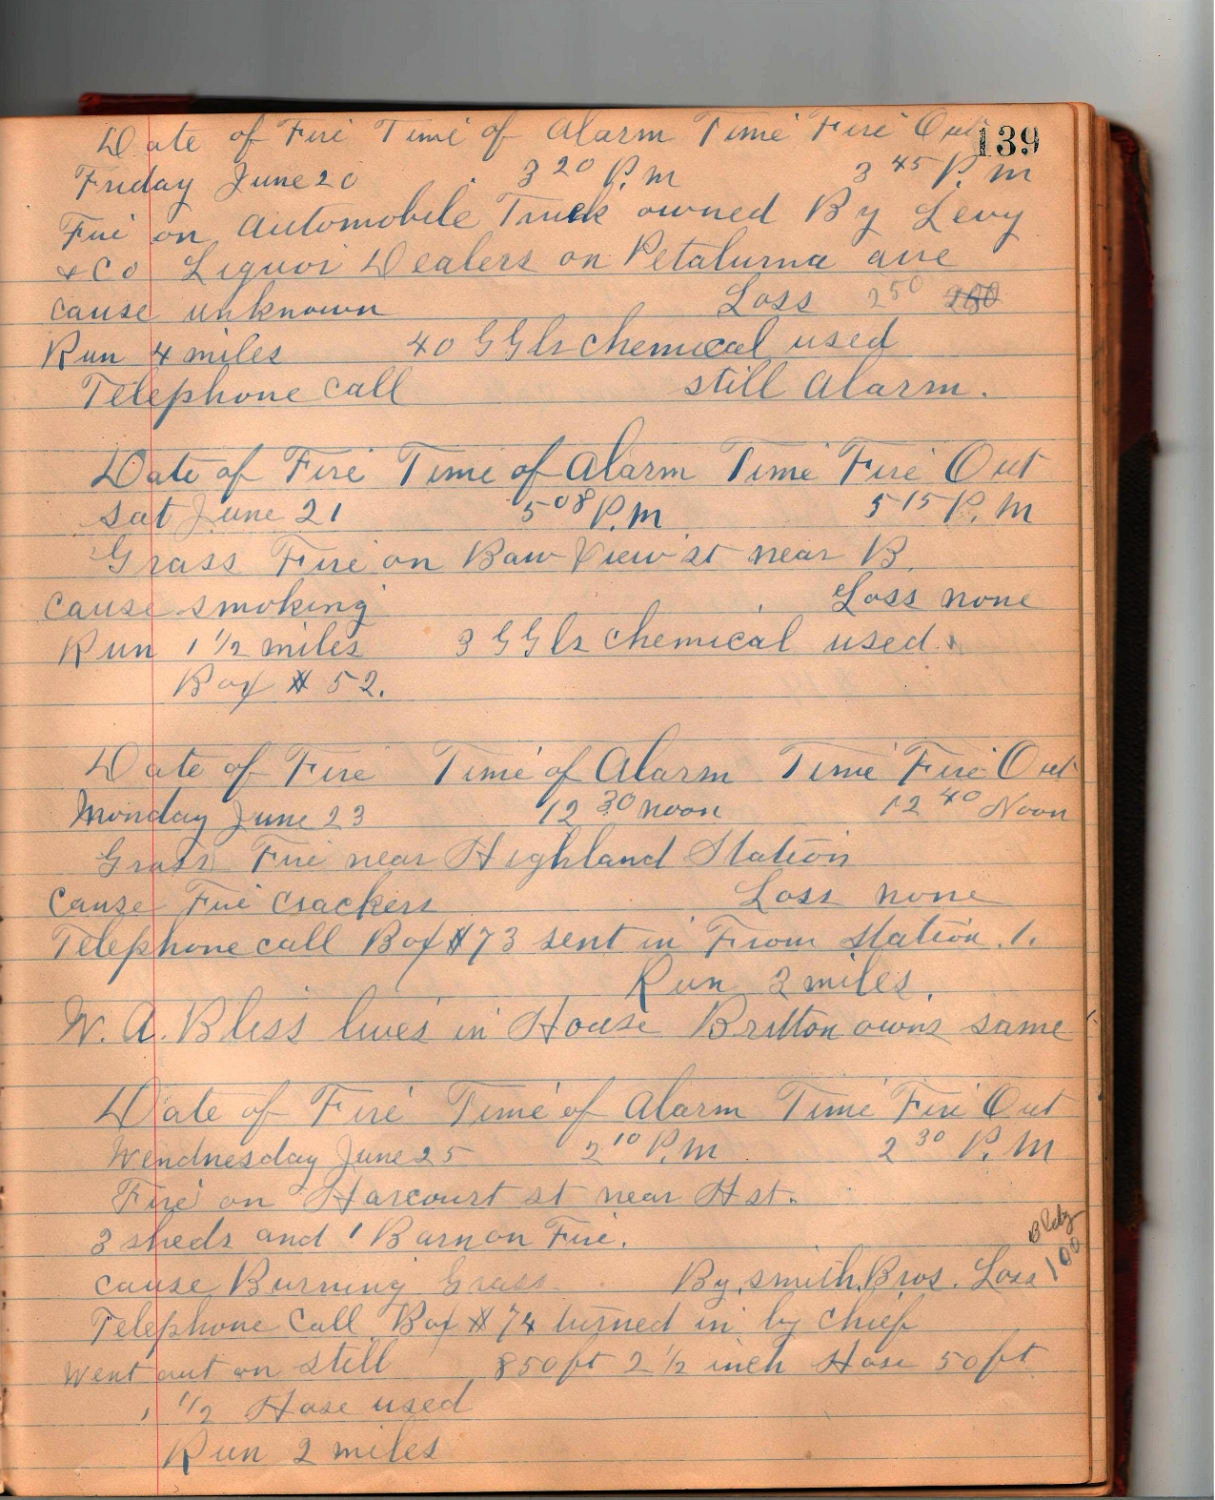 139
Date of Fire Time of Alarm Time Fire Out
Friday June 20 3 20 P.M 3 45 P.M
Fire on Automobile Truck owned By Levy
+ Co Liquor Dealers on Petaluma ave
cause unknown Loss 250
Run 4 miles 40 GGls chemical used
Telephone call still Alarm.
Date of Fire Time of Alarm Time Fire Out
Sat June 21 5 08 P.M 5 15 P.M
Grass Fire on Baw View st near B.
cause smoking Loss none
Run 1 1/2 miles 3 GGls chemical used.
Box # 52.
Date of Fire Time of Alarm Time Fire Out
Monday June 23 12 30 noon 12 40 Noon
Grass Fire near Highland Station
Cause Fire Crackers Loss none
Telephone call Box # 73 sent in From Station 1.
Run 2 miles.
W. A. Bliss lives in House Britton owns same
Date of Fire Time of Alarm Time Fire Out
Wendnesday June 25 2 10 P.M 2 30 P.M
Fire on Harcourt st near H st.
3 sheds and 1 Barn on Fire.
Bldg
cause Burning Grass By. Smith. Bros. Loss 100
Telephone Call Box # 74 turned in by Chief
Went out on still 850 ft 2 1/2 inch Hose 50 ft
1 1/2 Hose used
Run 2 miles